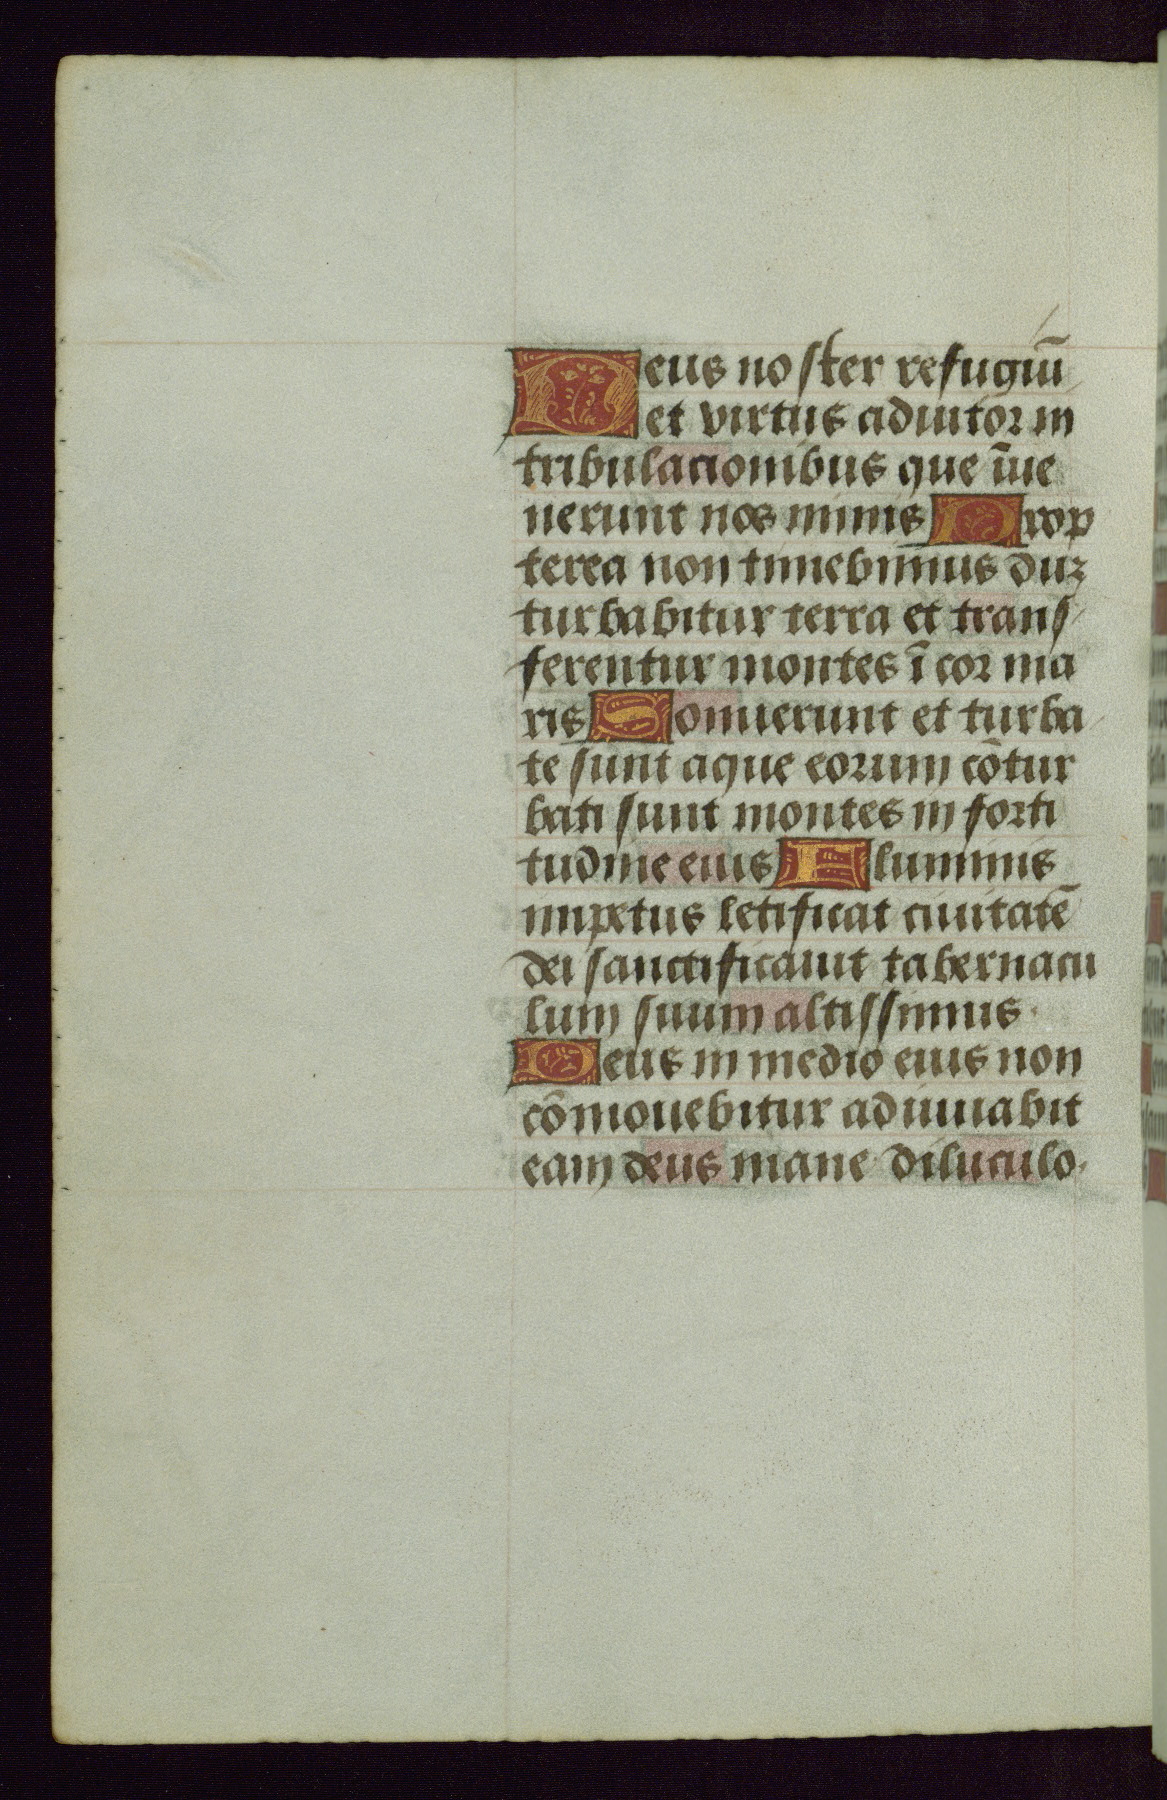 Deus noster refugiū
et virtus adiutor in
tribulacionibus que īue
nerunt nos nimis Prop
terea non timebimus duꝫ
turbabitur terra et trans
ferentur montes ī cor ma
ris Sonuerunt et turba
te sunt aque eorum cōtur
bati sunt montes in forti
tudine eius Fluminis
impetus letificat ciuitatē
dei sanctificauit tabernacu
lum suum altissimus·
Deus in medio eius non
cōmouebitur adiuuabit
eam deus mane diluculo·